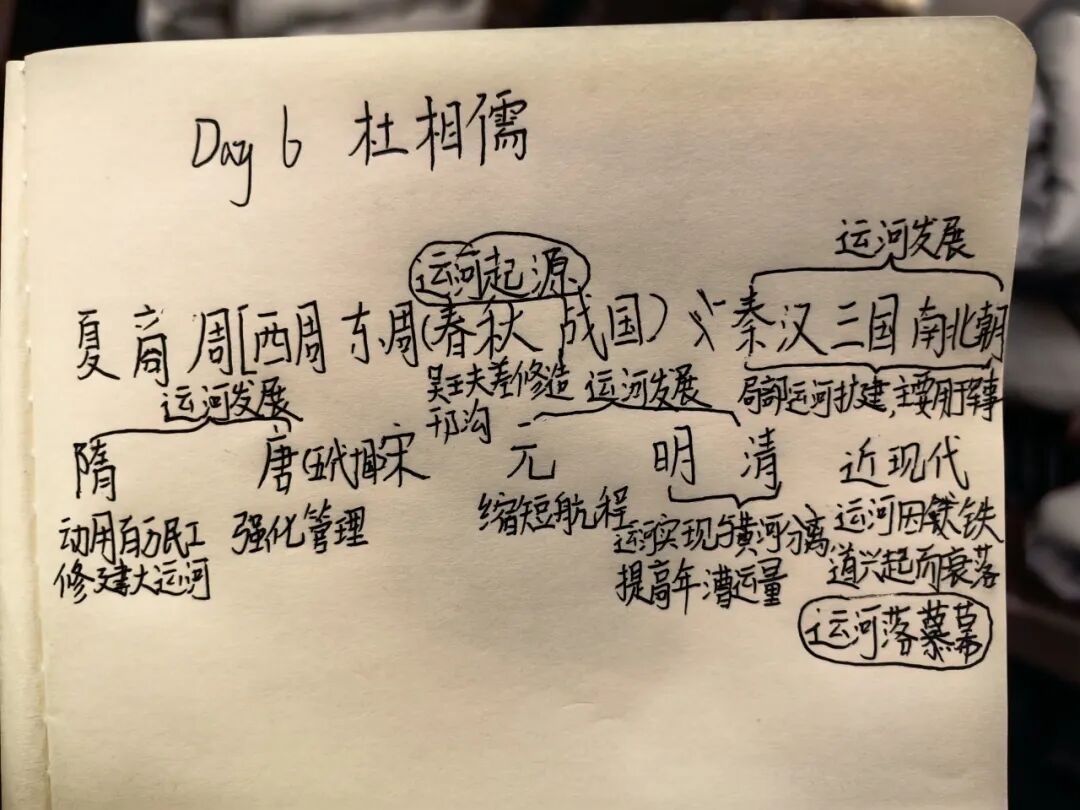 Day 6 杜相儒
运河发展
运河起源
夏商周[西周 东周(春秋 战国) 秦汉三国南北朝
吴王夫差修造
邗沟
局部运河扩建,主要用于军事
运河发展
运河发展
隋 唐(五代十国)宋 元 明 清 近现代
动用百万民工
修建大运河
强化管理
缩短航程
运河实现与黄河分离
提高年漕运量
运河因铁
道兴起而衰落
运河落幕